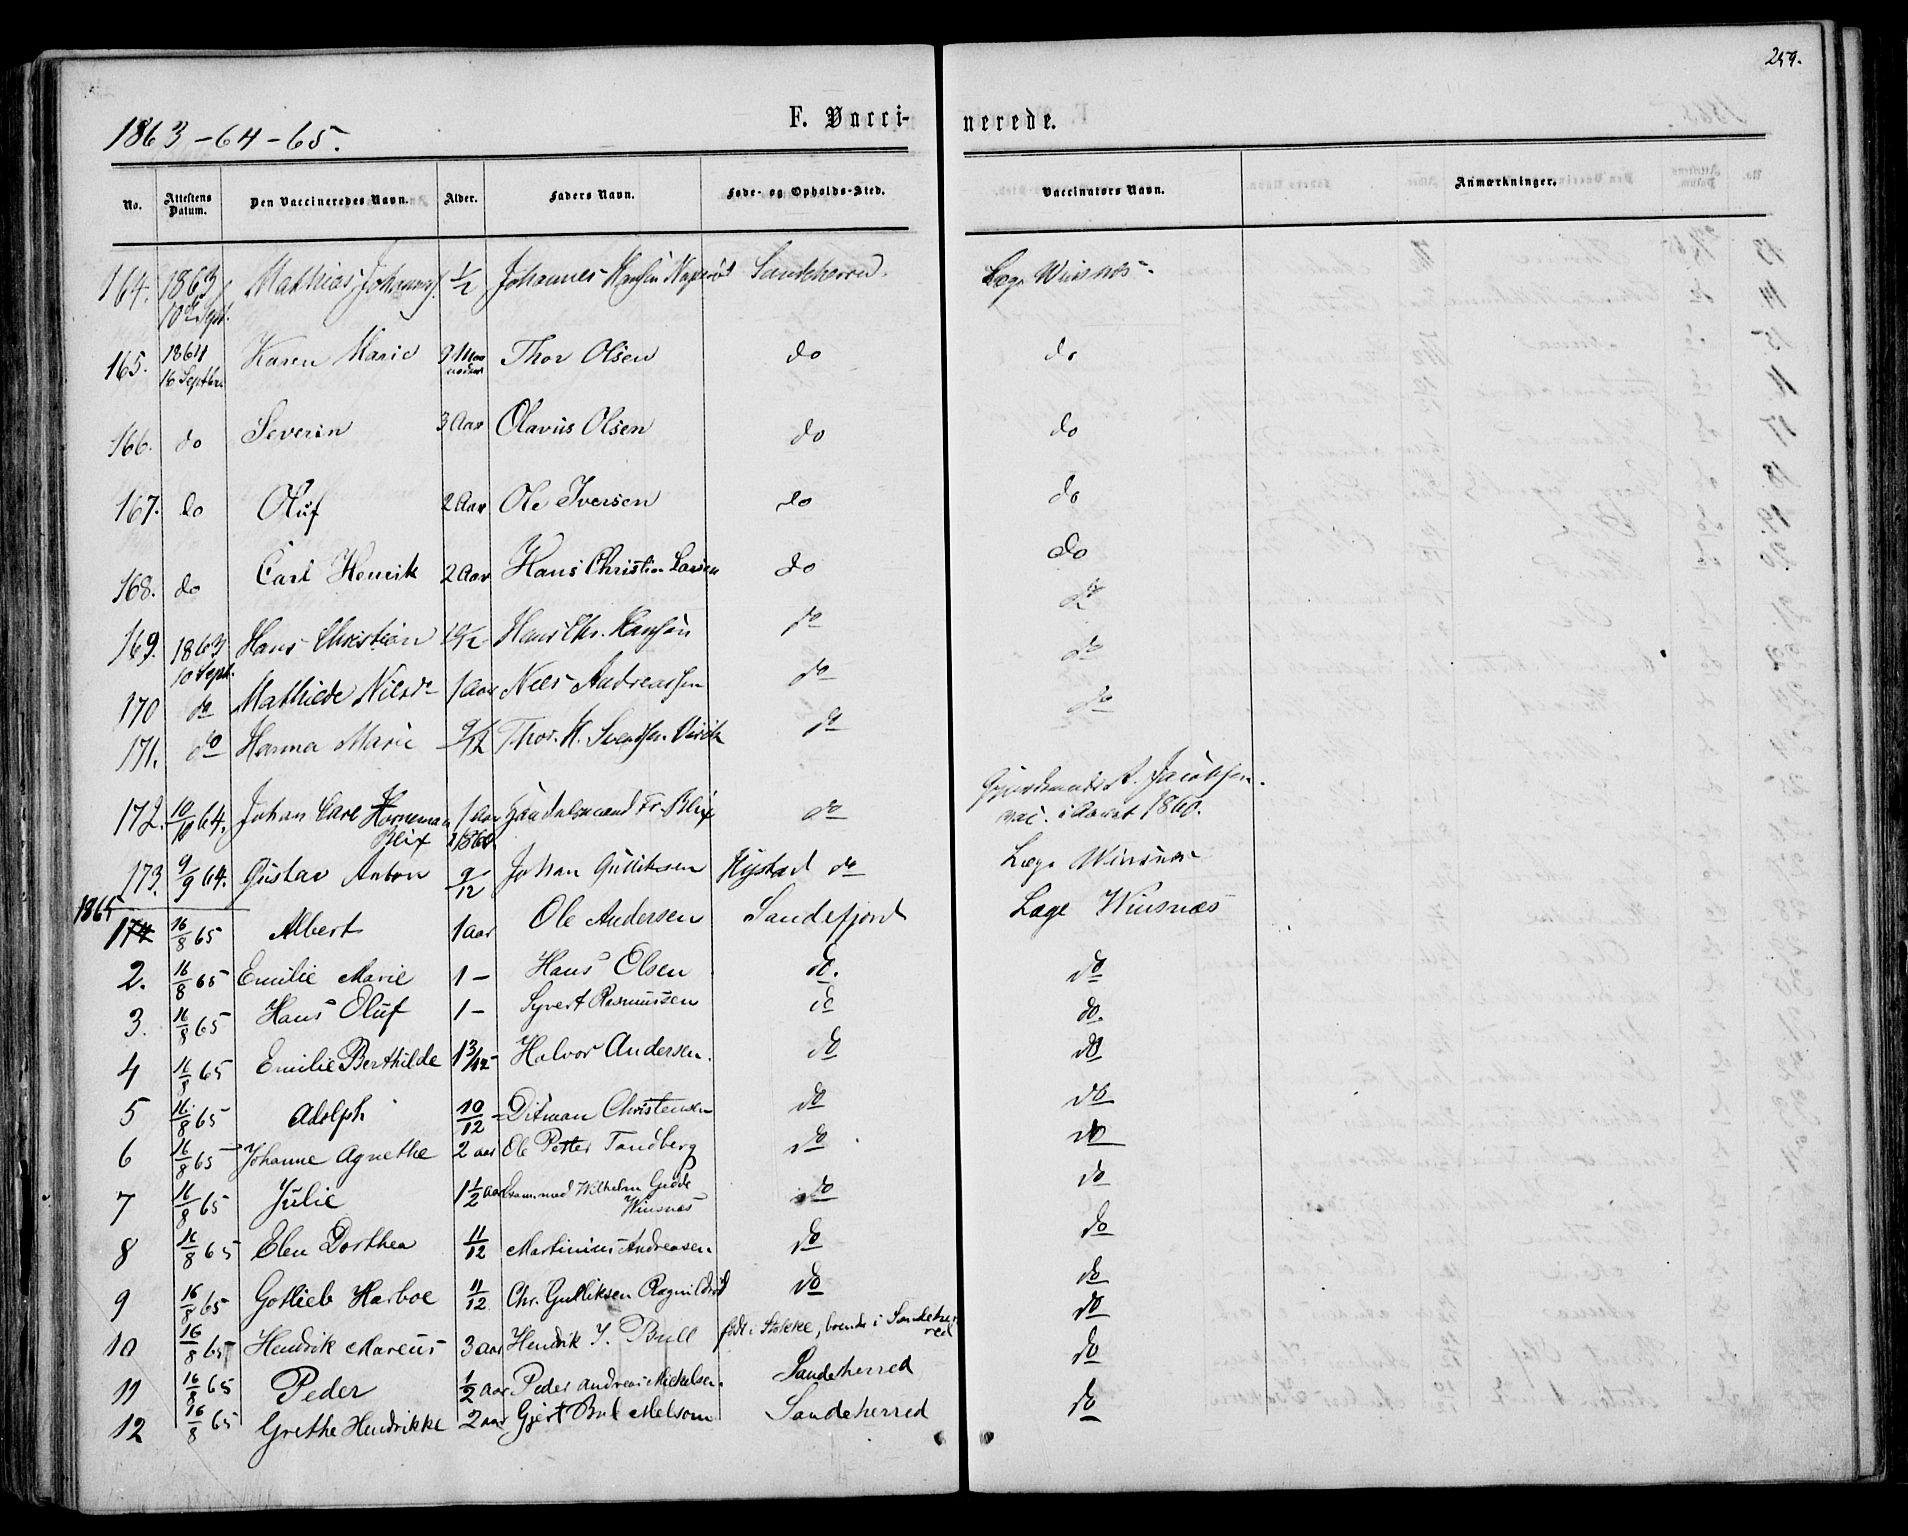 259.
1863-64-65.
F. Vacci- nerede.
No. Attestens Datum. Den Vaccineredes Navn. Alder. Faders Navn. Føde- og Opholds-Sted. Vaccinators Navn. Anmærkninger.
164. 1863 10de Sept. Mathias Johanns. 1/2 Johannes Hansen Sandeherred. Læge Winsnes.
165. 1864 16 Septbr. Karen Marie 9 Maaneder Thor Olsen do do
166. do Severin 3 Aar Olavus Olsen do do
167. do Oluf 2 Aar Ole Iversen do do
168. do Carl Henrik 2 Aar Hans Christian Larsen do do
169. 1863 10 Sept. Hans Christian Hans Chr. Hansen do do
170 do Mathilde Nilsdr 1 Aar Niels Andreassen do do
171. do Hanna Marie 9/12 Thor H. Svendsen Virik do do
172. 10/10 64. Johan Carl Horneman Blix 1 Aar 1860. Handelsmand Fr. Blix do A. Jacobsen. vac. i Aaret 1860.
173. 9/9 64. Gustav Anton 9/12 Johan Gulliksen Hystad do Læge Winsnes
1865
174 16/8 65 Albert 1 aar Ole Andersen Sandefjord Læge Winsnæs
2. 16/8 65 Emilie Marie 1 - Hans Olsen do. do
3. 16/8 65 Hans Oluf 1 - Syvert Rasmussen do do.
4 16/8 65 Emilie Berthilde 1 3/12 - Halvor Andersen. do do
5 16/8 65 Adolph 10/12 - Ditman Christensen do do
6 16/8 65 Johanne Agnethe 2 aar Ole Petter Tandberg do do
7 16/8 65 Julie 1 1/2 aar Wilhelm Grøde Winsnæs do do
8 16/8 65 Elen Dorthea 11/12 Martinius Andreasen do do
9 16/8 65 Gotlieb Harboe 11/12 Chr. Gulliksen Ragnildrød do do
10 16/8 65 Hendrik Marcus 3 aar Hendrik J. Bull født i Stokke, boende i Sandeherred do
11 16/8 65 Peder 1/2 aar Peder Andreas Mickelsen. Sandeherred do
12 16/8 65 Grethe Hendrikke 2 aar Gjert Bul Melsom Sandeherred do